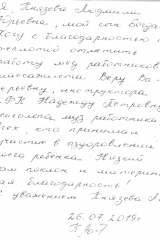 Я Князева Людмила
Юрьевна, мой сын Богда
Хочу с благодарностью
отметить
работу мед работников
массажиста Веру Ва-
рьевну, инструктора
ЛФК Надежду Петровну
психолога, муз работника
всех, кто принимал
участие в оздоровлении
моего ребенка. Низкий
вам поклон и материн
кая благодарность!
С уважением Князева Л.
26.07.2019г